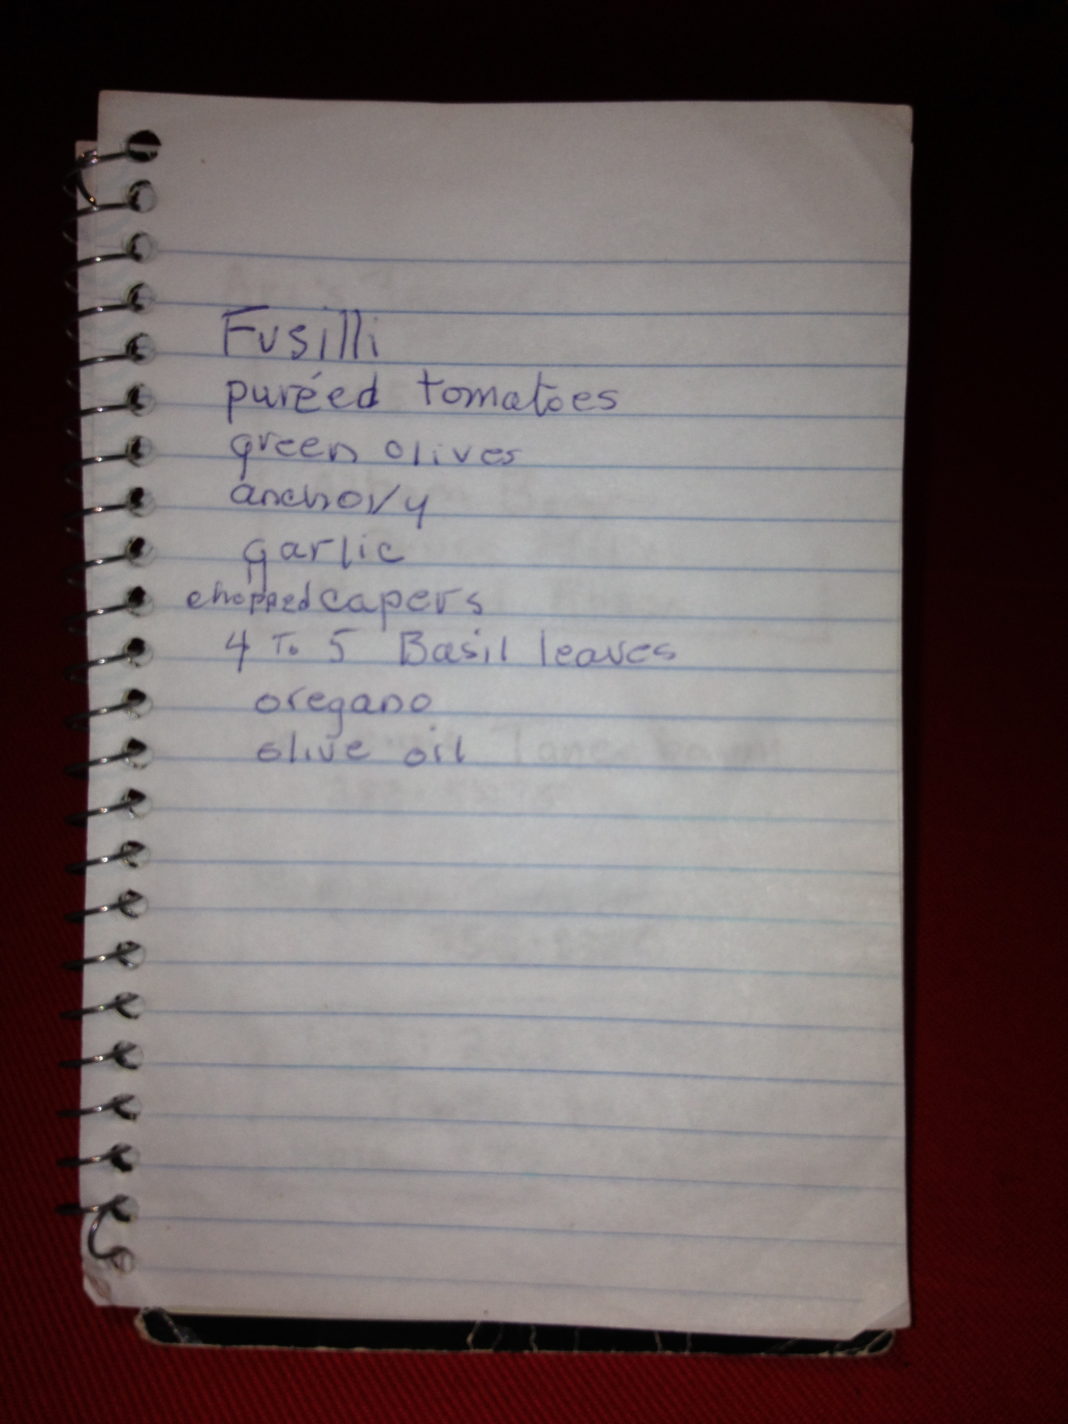 Fusilli
puréed tomatoes
green olives
anchovy
garlic
chopped capers
4 To 5 Basil leaves
oregano
olive oil